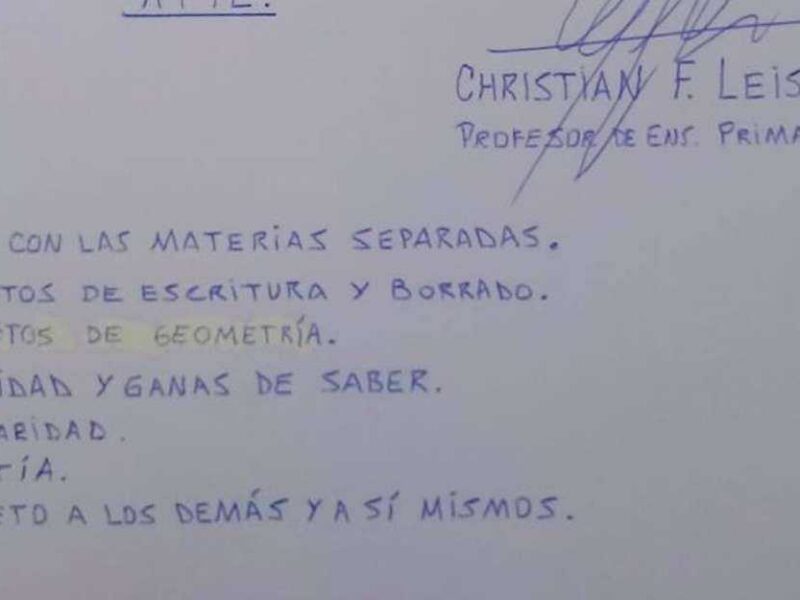 ATTE.
CHRISTIAN F. LEIS
PROFESOR DE ENS. PRIMA
CON LAS MATERIAS SEPARADAS.
TOS DE ESCRITURA Y BORRADO.
TOS DE GEOMETRÍA.
IDAD Y GANAS DE SABER.
ARIDAD.
TÍA.
ETO A LOS DEMÁS Y A SÍ MISMOS.